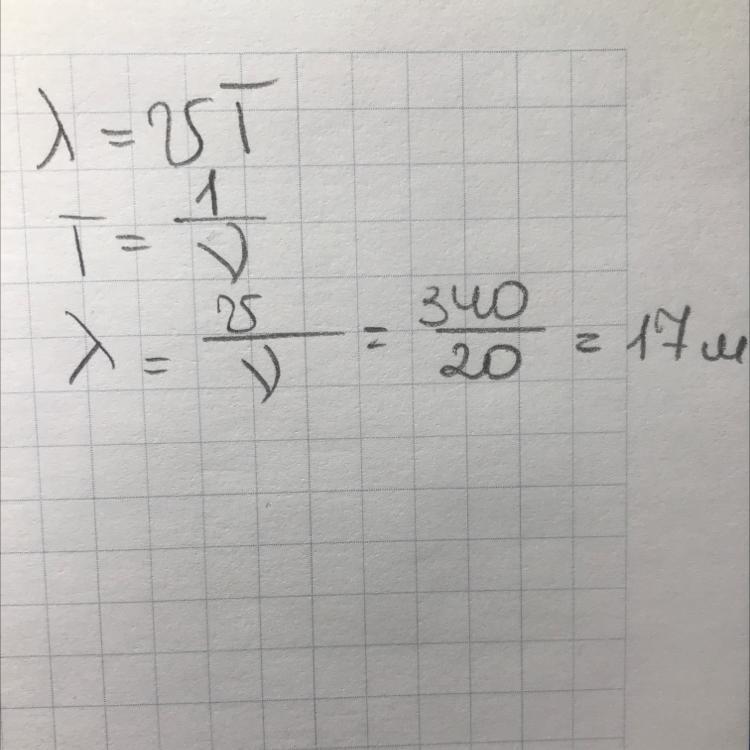 λ = υT
T = 1/ν
λ = υ/ν = 340/20 = 17 м